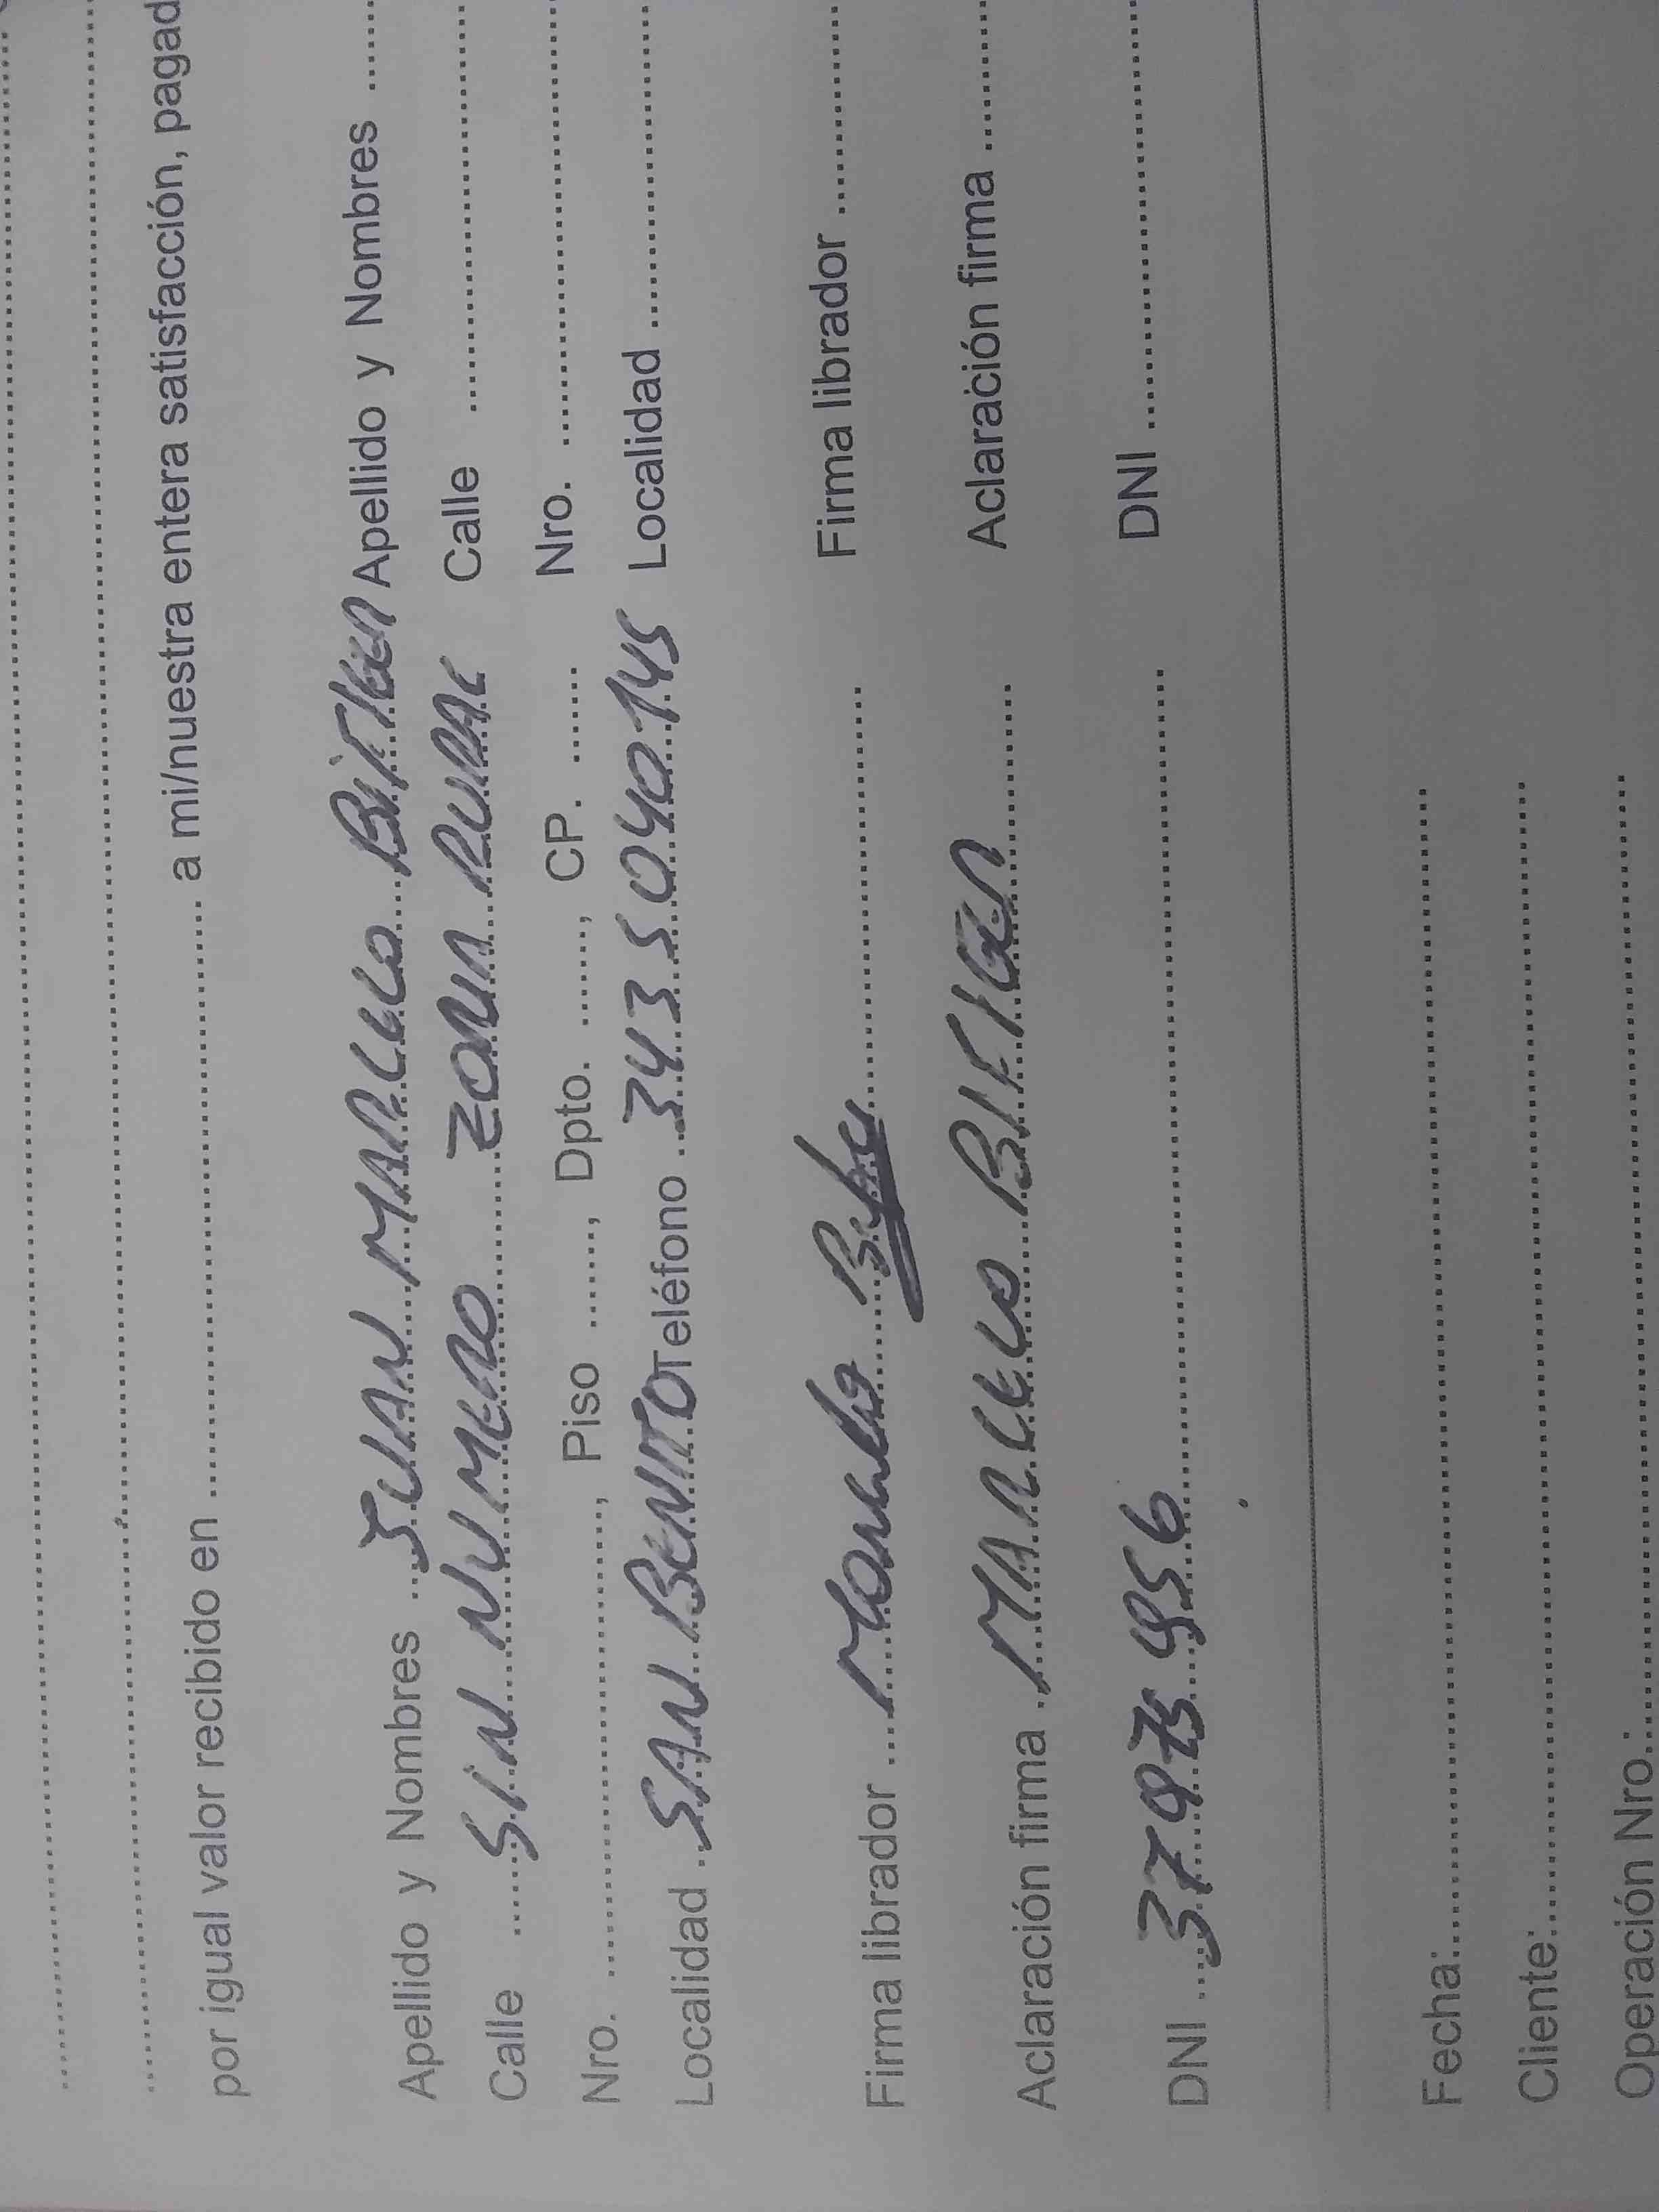 por igual valor recibido en ........ a mi/nuestra entera satisfacción, pagad
Apellido y Nombres JUAN MARCELO BITTGER Apellido y Nombres ........
Calle SIN NUMERO ZONA RURAL Calle ........
Nro. ........, Piso ......, Dpto. ......, CP. ...... Nro. ........
Localidad SAN BENITO Teléfono 3435040145 Localidad ........
Firma librador Marcelo Firma librador ........
Aclaración firma MARCELO BITTGER Aclaración firma ........
DNI 37975956 DNI ........
Fecha: ........
Cliente: ........
Operación Nro.: ........